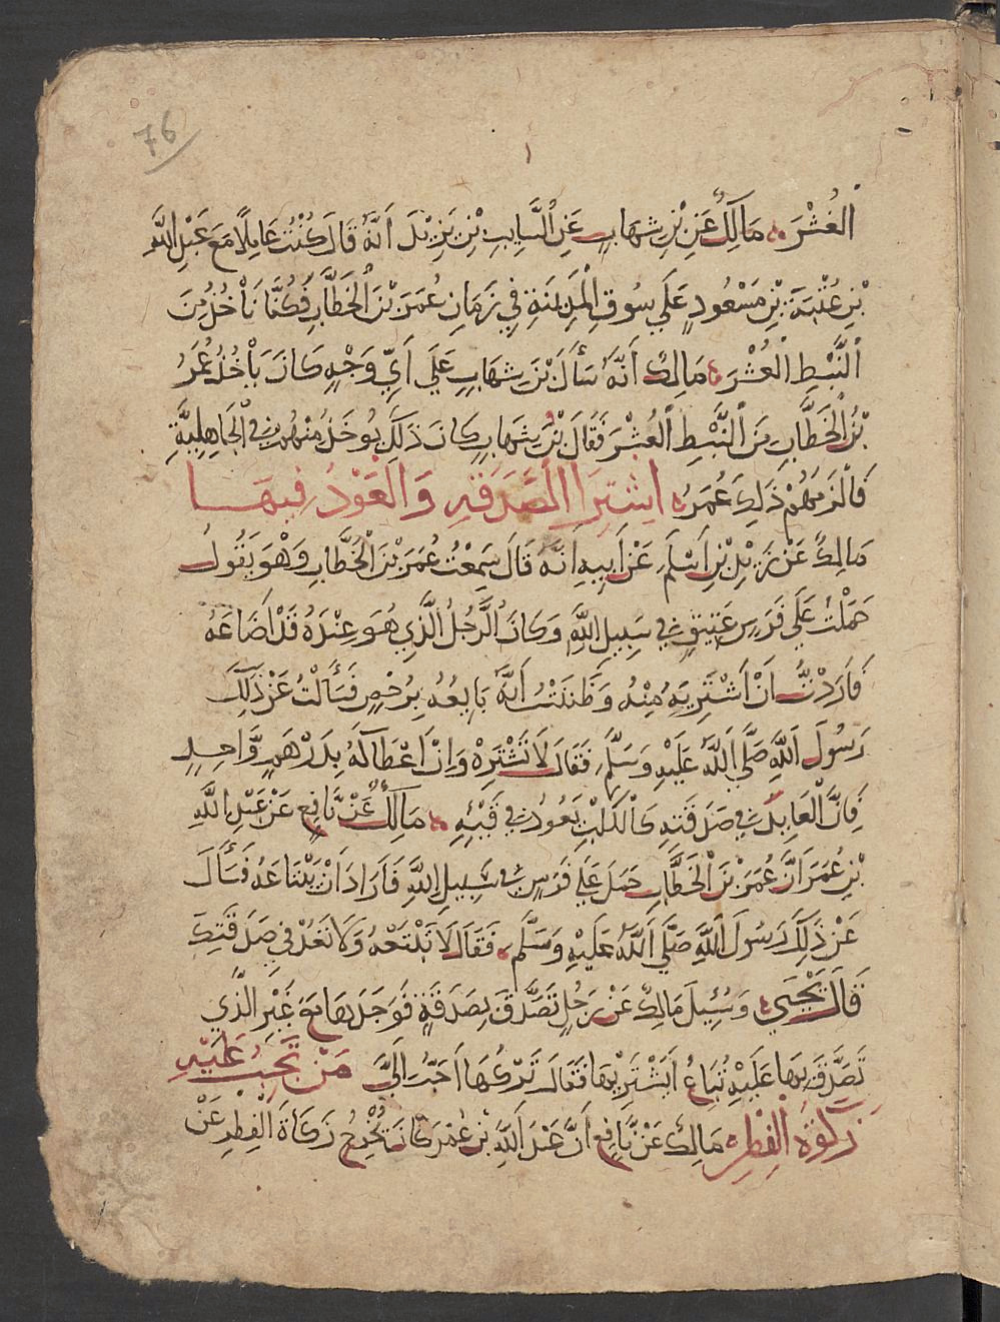 76
الْعُشْرَ مَالِكٌ عَنِ بْنِ شِهَابٍ عَنِ السَّايِبِ بْنِ يَزِيْدَ أَنَّهُ قَالَ كُنْتُ عَامِلًا مَعَ عَبْدِ اللَّهِ
بْنِ عُتْبَةَ بْنِ مَسْعُودٍ عَلَي سُوقِ الْمَدِينَةِ فِي زَمَانِ عُمَرَ بْنِ الْخَطَّابِ فَكُنَّا نَأْخُذُ مِنَ
النَّبْطِ الْعُشْرَ مَالِكٌ أَنَّهُ سَأَلَ بْنَ شِهَابٍ عَلَي أَيِّ وَجْهٍ كَانَ يَأْخُذُ عُمَرُ
بْنُ الْخَطَّابِ مِنَ النَّبْطِ الْعُشْرَ فَقَالَ بْنُ شِهَابٍ كَانَ ذَلِكَ يُوخَذُ مِنْهُمْ فِي الْجَاهِلِيَّةِ
فَأَلْزَمَهُمْ ذَلِكَ عُمَرُ اشْتِرَا الصَّدَقَةِ وَالْعَوْدُ فِيهَا
مَالِكٌ عَنْ زَيْدِ بْنِ أَسْلَمَ عَنْ أَبِيهِ أَنَّهُ قَالَ سَمِعْتُ عُمَرَ بْنَ الْخَطَّابِ وَهْوَ يَقُولُ
حَمَلْتُ عَلَي فَرَسٍ عَتِيقٍ فِي سَبِيلِ اللَّهِ وَكَانَ الرَّجُلُ الَّذِي هُوَ عِنْدَهُ قَدْ أَضَاعَهُ
فَأَرَدْتُّ أَنْ أَشْتَرِيَهُ مِنْهُ وَظَنَنْتُ أَنَّهُ بَايِعُهُ بِرُخْصٍ فَسَأَلْتُ عَنْ ذَلِكَ
رَسُولَ اللَّهِ صَلَّي اللَّهُ عَلَيْهِ وَسَلَّمَ فَقَالَ لَا تَشْتَرِهْ وَإِنْ أَعْطَاكَهُ بِدَرْهَمٍ وَّاحِدٍ
فَإِنَّ الْعَايِدَ فِي صَدَقَتِهِ كَالْكَلْبِ يَعُودُ فِي قَيْئِهِ مَالِكٌ عَنْ نَّافِعٍ عَنْ عَبْدِ اللَّهِ
بْنِ عُمَرَ أَنَّ عُمَرَ بْنَ الْخَطَّابِ حَمَلَ عَلَي فَرَسٍ فِي سَبِيلِ اللَّهِ فَأَرَادَ أَنْ يَبْتَاعَهُ فَسَأَلَ
عَنْ ذَلِكَ رَسُولَ اللَّهِ صَلَّي اللَّهُ عَلَيْهِ وَسَلَّمَ فَقَالَ لَا تَبْتَعْهُ وَلَا تَعُدْ فِي صَدَقَتِكَ
قَالَ يَحْيَي وَسُئِيلَ مَالِكٌ عَنْ رَجُلٍ تَصَدَّقَ بِصَدَقَةٍ فَوَجَدَهَا مَعَ غَيْرِ الَّذِي
تَصَدَّقَ بِهَا عَلَيْهِ تُبَاعُ أَيَشْتَرِيهَا فَقَالَ تَرْكُهَا أَحَبُّ إِلَيَّ مَنْ تَجِبُ عَلَيْهِ
زَكَوٰةُ الْفِطْرِ مَالِكٌ عَنْ نَّافِعٍ أَنَّ عَبْدَ اللَّهِ بْنَ عُمَرَ كَانَ يُخْرِجُ زَكَاةَ الْفِطْرِ عَنْ